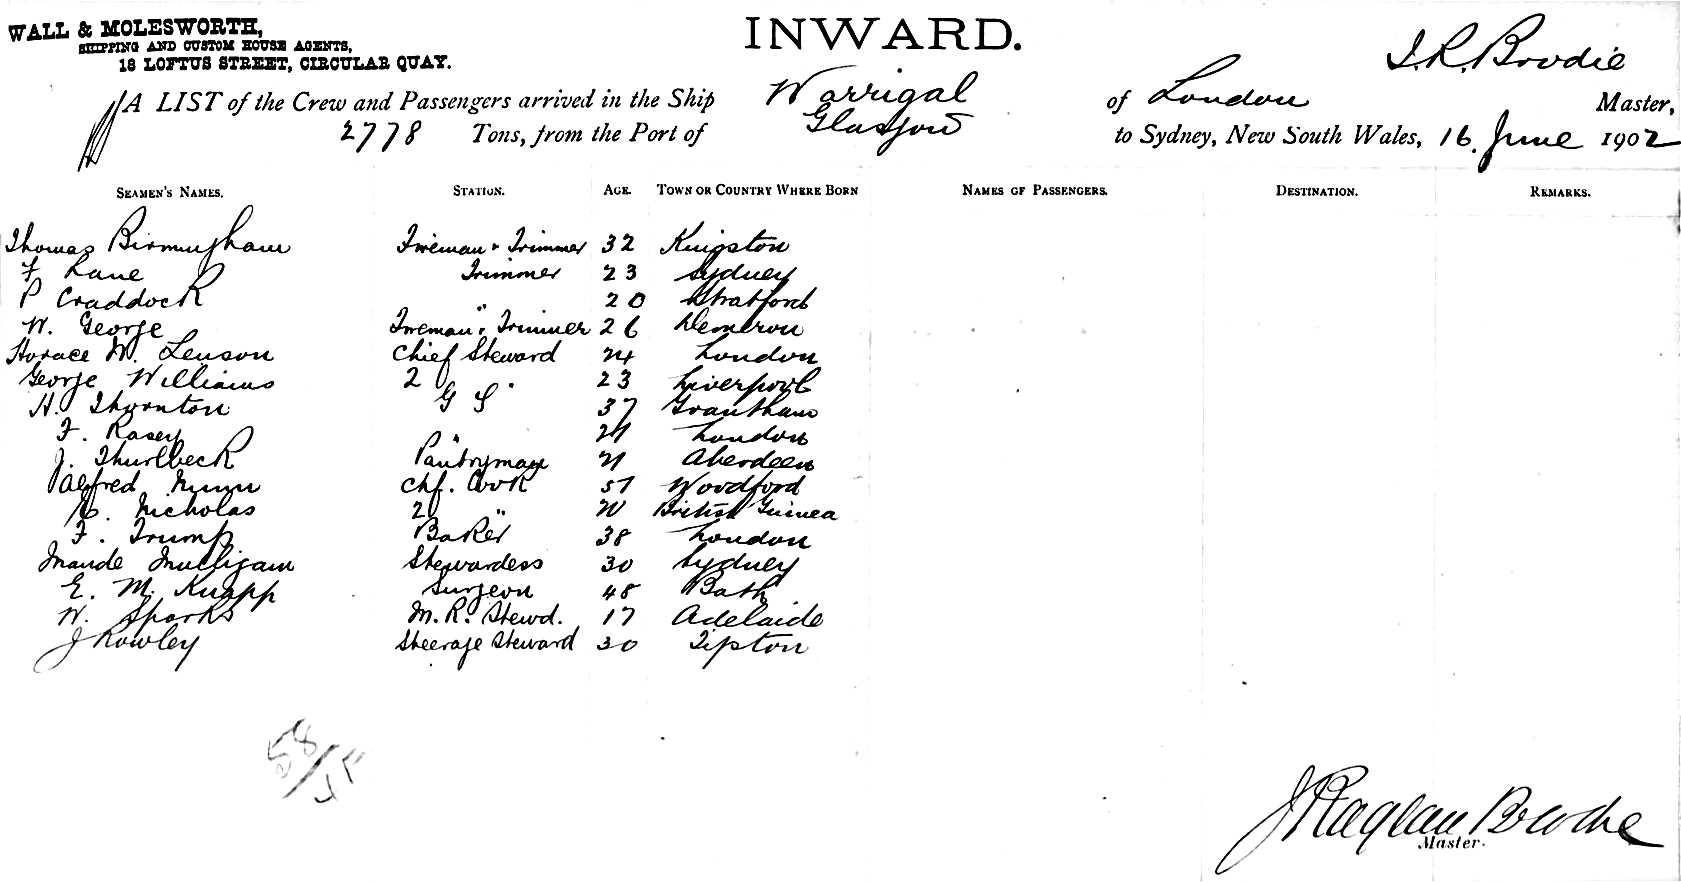 WALL & MOLESWORTH,
SHIPPING AND CUSTOM HOUSE AGENTS,
18 LOFTUS STREET, CIRCULAR QUAY.
INWARD.
J. R. Brodie
A LIST of the Crew and Passengers arrived in the Ship Warrigal of London Master,
2778 Tons, from the Port of Glasgow to Sydney, New South Wales, 16 June 1902
SEAMEN'S NAMES. STATION. AGE. TOWN OR COUNTRY WHERE BORN NAMES OF PASSENGERS. DESTINATION. REMARKS.
Thomas Birmingham Fireman & Trimmer 32 Kingston
F Lane Trimmer 23 Sydney
P Craddock " 20 Stratford
W. George Fireman & Trimmer 26
Horace M. Lenson Chief Steward 24 London
George Williams 2 " 23 Liverpool
H. Thornton G S 37 Grantham
F. Rasey " London
J. Thurlbeck Pantryman 21 Aberdeen
Alfred Nunn Chf. Cook 51 Woodford
Nicholas 2 " British Guinea
F. Trump Baker 38 London
Maude Mulligan Stewardess 30 Sydney
E. M. Knapp Surgeon 48 Bath
W. Sparks M. R. Stewd. 17 Adelaide
J Rowley Steerage Steward 30 Tipton
J Raglan Brodie
Master.